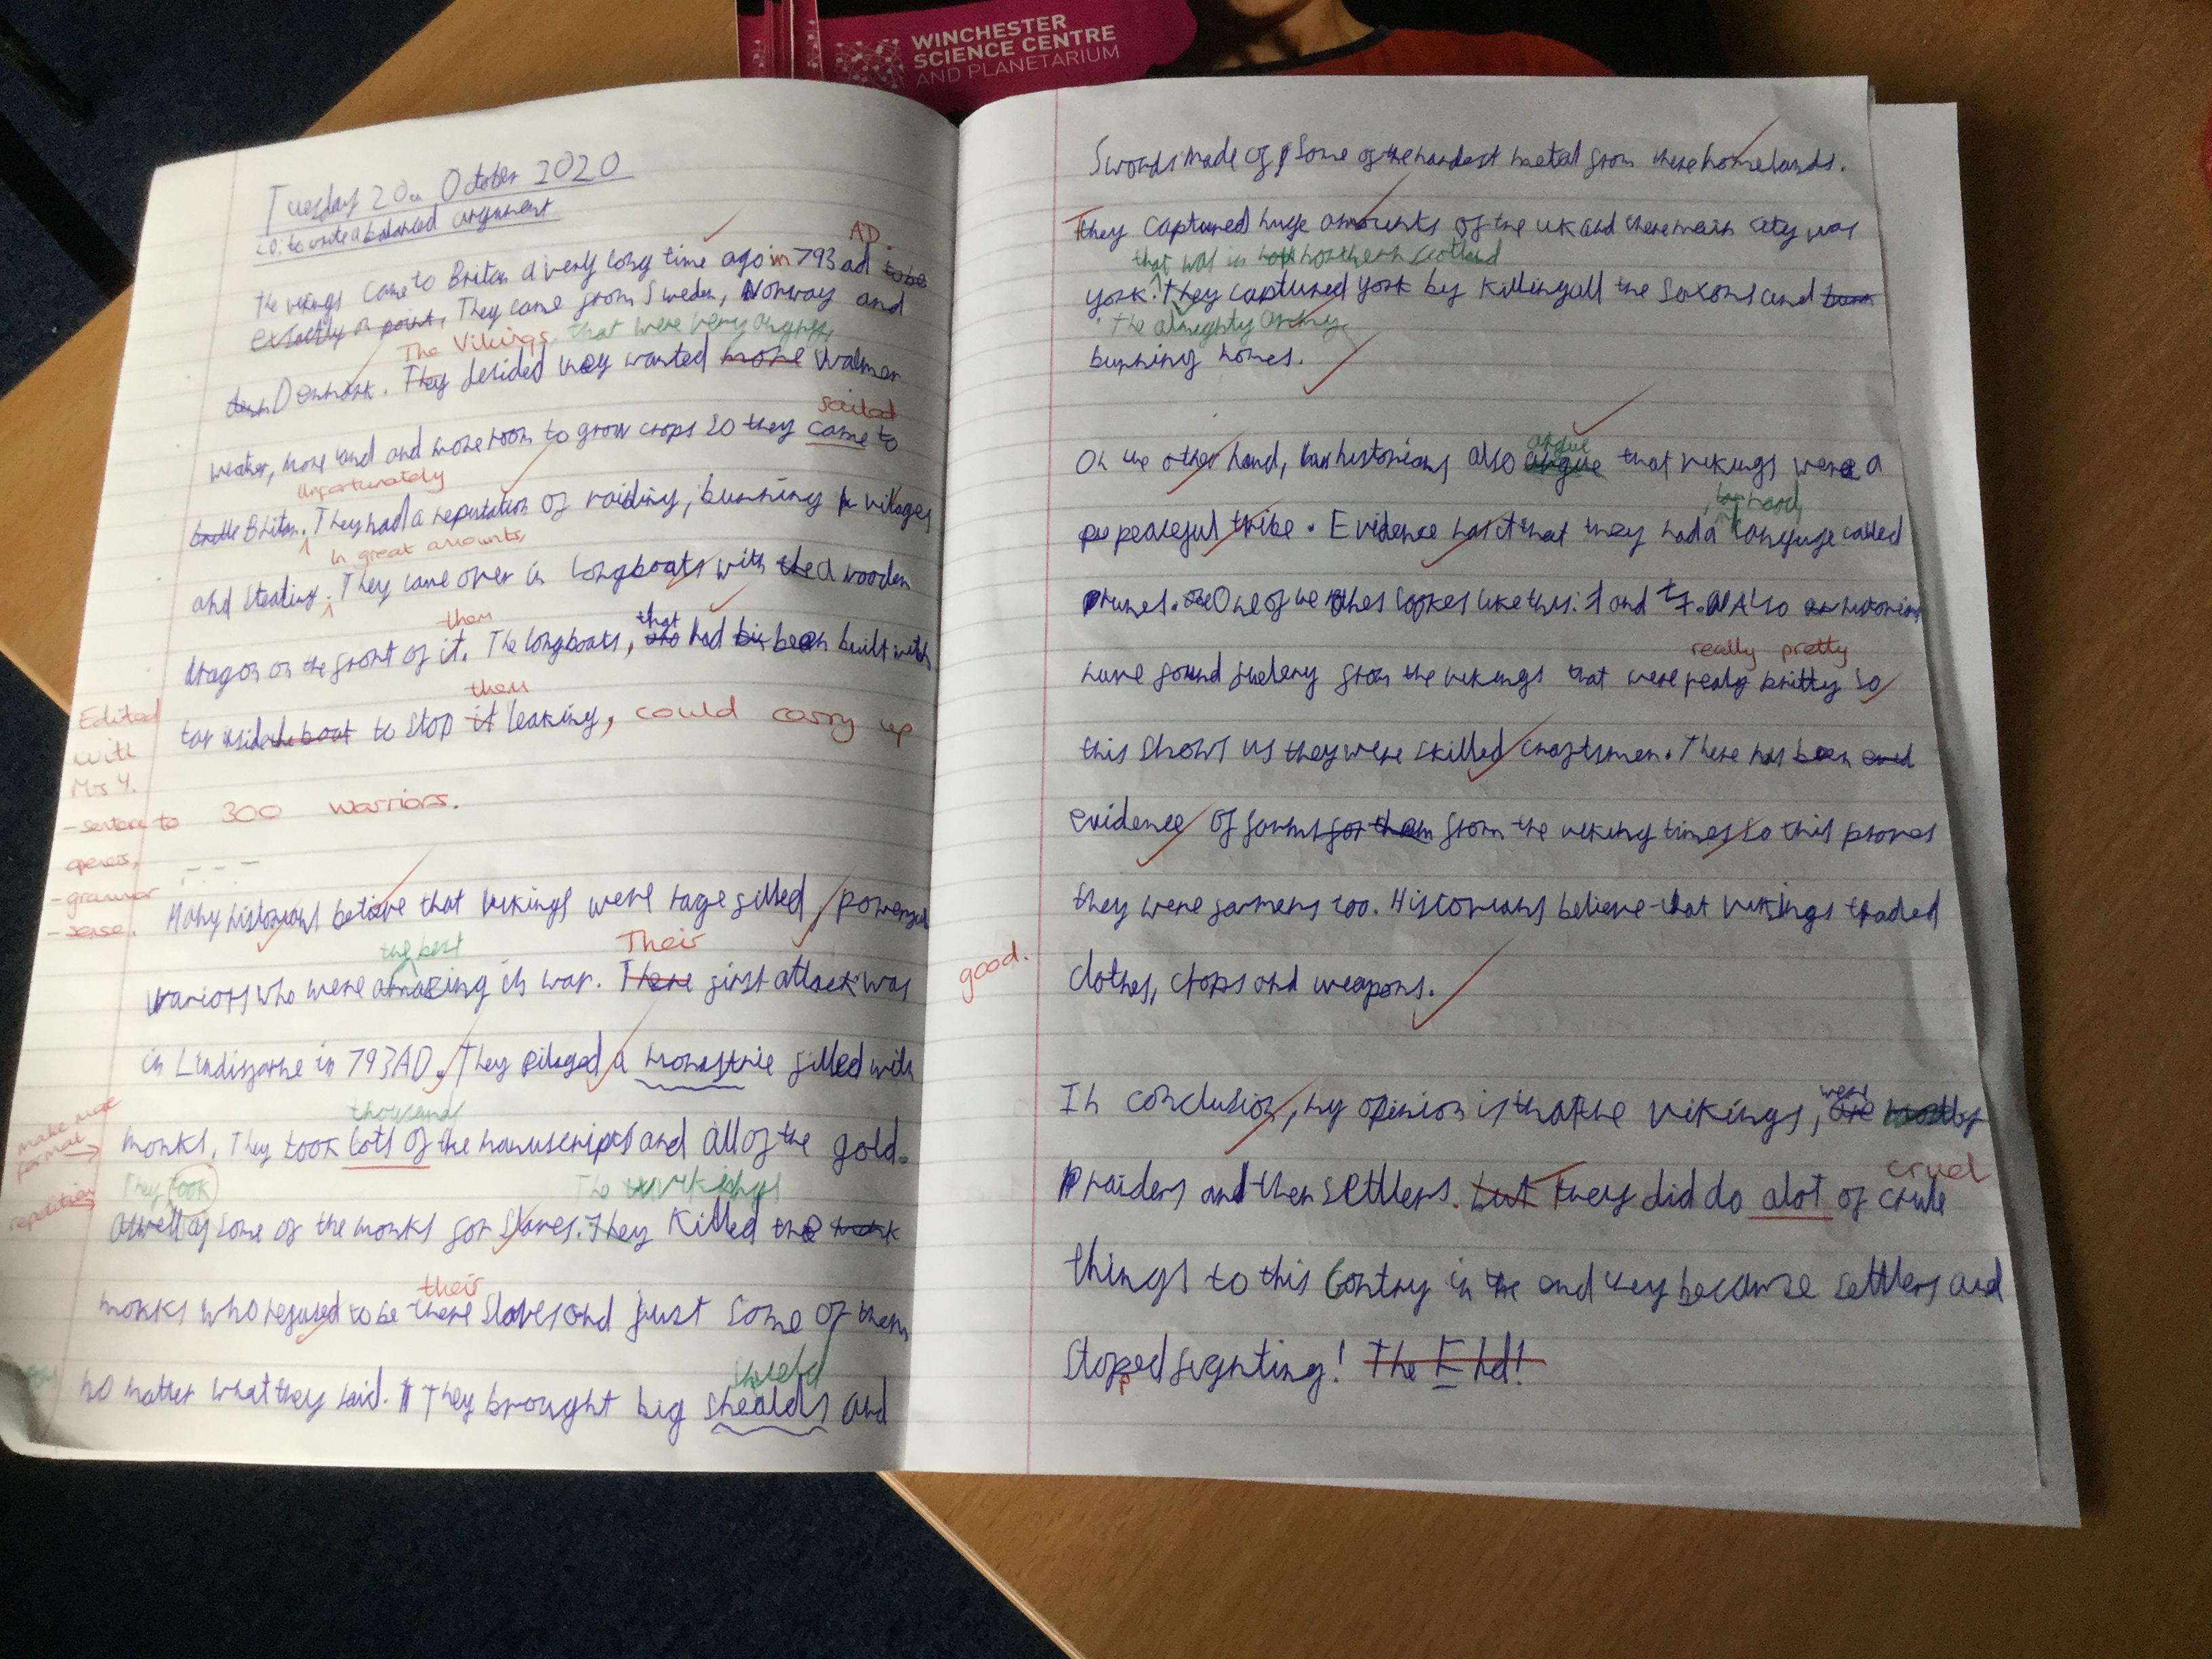 WINCHESTER
SCIENCE CENTRE
AND PLANETARIUM
Tuesday 20th October 2020
LO: to write a balanced argument
AD.
the vikings came to Britan a very long time ago in 793 ad to be
exsactly on point, They came from Sweden, Norway and
The Vikings, that were very angry,
Denmark. They desided they wanted more walmer
sailed
weather, more land and more room to grow crops so they came to
Unfortunately
Britan. They had a reputation of raiding, burning villages
In great amounts,
and stealing. They came over in longboats with the a wooden
them that
dragon on the front of it. The longboats, who had been built with
them
tar inside the boat to stop it leaking, could carry up
to 300 warriors.
Edited
with
Mrs Y.
- sentence
openers,
- grammar
- sense.
Many historians beleive that vikings were rage filled, powerful
the best Their
warriors who were amazing in war. There first attack was
in Lindisfarne in 793AD. They pilaged a monastrie filled with
make more
formal
thousands
monks. They took lots of the manuscripts and all of the gold.
repetition
They took The vikings
aswell as some of the monks for slaves. They killed the monk
their
monks who refused to be there slaves and just some of them
shield
no matter what they said. They brought big shealds and
Swords made of some of the hardest metal from there homelands.
They captured huge amounts of the uk and there main city was
that was in northern scotland
york. They captured york by killing all the saxons and burn
the almighty army
burning homes.
On the other hand, historians also argue that vikings were a
peaceful tribe. Evidence has it that they had a language called
runes. One of the runes lookes like this: and Also historians
really pretty
have found juelery from the vikings that were realy pritty so
this shows us they were skilled craftsmen. There has been eved
evidence of farms for them from the viking times so this proves
they were farmers too. Historians believe that vikings traded
good.
clothes, crops and weapons.
were
In conclusion, my opinion is that the vikings, are mostly
cruel
raiders and then settlers. but They did do alot of crule
things to this contry in the end they became settlers and
stoped fighting! The End!
p